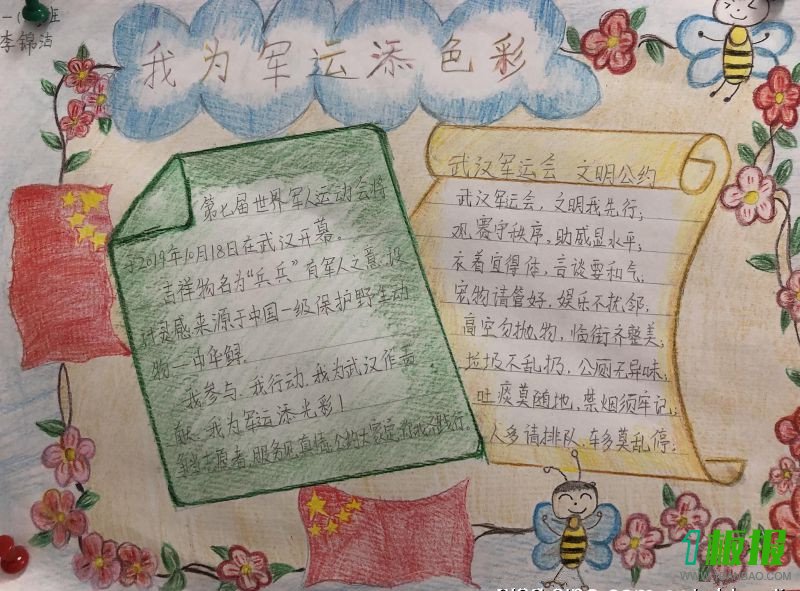 一(
班
李锦洁
我为军运添色彩
第七届世界军人运动会将
于2019年10月18日在武汉开幕。
吉祥物名为“兵兵”有军人之意,设
计灵感来源于中国一级保护野生动
物—中华鲟。
我参与、我行动、我为武汉作贡
献、我为军运添光彩！
争当志愿者,服务见真情,公约大家定,你我齐践行。
武汉军运会 文明公约
武汉军运会，文明我先行;
观赛守秩序,助威显水平;
衣着宜得体，言谈要和气,
宠物请管好，娱乐不扰邻;
高空勿抛物，临街齐整美;
垃圾不乱扔，公厕无异味;
吐痰莫随地，禁烟须牢记;
人多请排队，车多莫乱停;
1板报
WWW.1BANBAO.COM